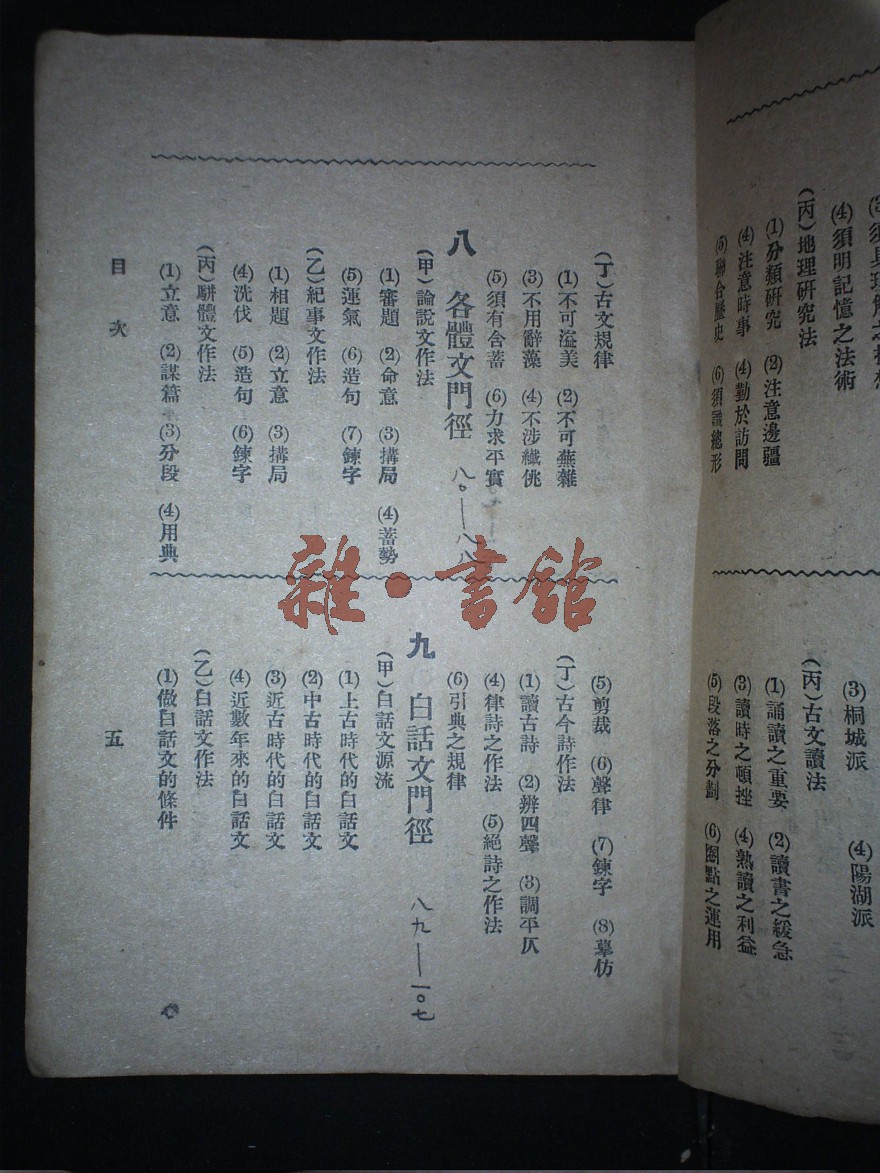 (4)須明記憶之法術
(丙)地理研究法
(1)分類研究 (2)注意邊疆
(4)注意時事 (4)勤於訪問
(5)聯合歷史 (6)須識總形
(3)桐城派 (4)陽湖派
(丙)古文讀法
(1)誦讀之重要 (2)讀書之緩急
(3)讀時之頓挫 (4)熟讀之利益
(5)段落之分劃 (6)圈點之運用
(丁)古文規律
(1)不可溢美 (2)不可蕪雜
(3)不用辭藻 (4)不涉纖佻
(5)須有含蓄 (6)力求平實
八 各體文門徑 八〇—八八
(甲)論說文作法
(1)審題 (2)命意 (3)搆局 (4)蓄勢
(5)運氣 (6)造句 (7)鍊字
(乙)紀事文作法
(1)相題 (2)立意 (3)搆局
(4)洗伐 (5)造句 (6)鍊字
(丙)駢體文作法
(1)立意 (2)謀篇 (3)分段 (4)用典
(5)剪裁 (6)聲律 (7)鍊字 (8)摹仿
(丁)古今詩作法
(1)讀古詩 (2)辨四聲 (3)調平仄
(4)律詩之作法 (5)絕詩之作法
(6)引典之規律
九 白話文門徑 八九—一〇七
(甲)白話文源流
(1)上古時代的白話文
(2)中古時代的白話文
(3)近古時代的白話文
(4)近數年來的白話文
(乙)白話文作法
(1)做白話文的條件
目次
五
雜·書館